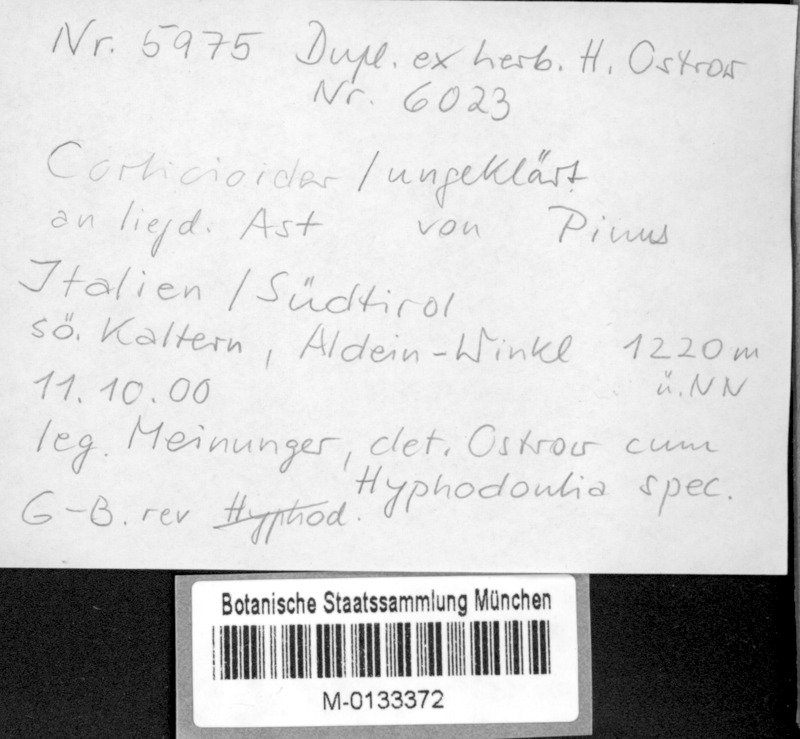 Nr. 5975 Dupl. ex herb. H. Ostrow
Nr. 6023
Corticioider / ungeklärt
an liegd. Ast von Pinus
Italien / Südtirol
sö. Kaltern, Aldein-Winkl 1220m
11.10.00 ü.NN
leg. Meinunger, det. Ostrow cum
Hyphodontia spec.
G-B. rev Hyphod.
Botanische Staatssammlung München
M-0133372